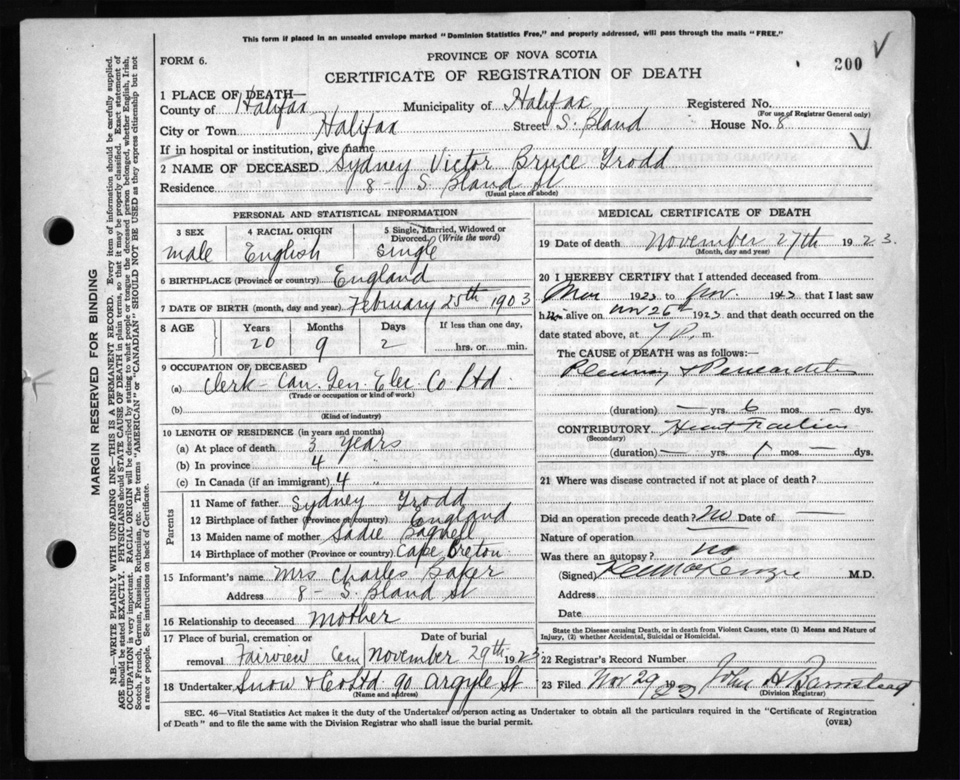 This form if placed in an unsealed envelope marked "Dominion Statistics Free," and properly addressed, will pass through the mails "FREE."
FORM 6.
PROVINCE OF NOVA SCOTIA
200
CERTIFICATE OF REGISTRATION OF DEATH
1 PLACE OF DEATH—
County of Halifax Municipality of Halifax Registered No.
(For use of Registrar General only)
City or Town Halifax Street S. Bland House No. 8
If in hospital or institution, give name
2 NAME OF DECEASED Sydney Victor Bruce Trodd
Residence 8 - S. Bland St
(Usual place of abode)
PERSONAL AND STATISTICAL INFORMATION
3 SEX 4 RACIAL ORIGIN 5 Single, Married, Widowed or Divorced (Write the word)
male English Single
6 BIRTHPLACE (Province or country) England
7 DATE OF BIRTH (month, day and year) February 25th 1903
8 AGE Years Months Days If less than one day,
20 9 2 hrs. or min.
9 OCCUPATION OF DECEASED
(a) Clerk - Can. Gen. Elec. Co Ltd.
(Trade or occupation or kind of work)
(b)
(Kind of industry)
10 LENGTH OF RESIDENCE (in years and months)
(a) At place of death 3 Years
(b) In province 4 "
(c) In Canada (if an immigrant) 4 "
Parents
11 Name of father Sydney Trodd
12 Birthplace of father (Province or country) England
13 Maiden name of mother Sadie Bagnell
14 Birthplace of mother (Province or country) Cape Breton
15 Informant's name Mrs Charles Baker
Address 8 - S. Bland St
16 Relationship to deceased Mother
17 Place of burial, cremation or removal Date of burial
Fairview Cem November 29th 1923
18 Undertaker Snow & Co Ltd 90 Argyle St
(Name and address)
MEDICAL CERTIFICATE OF DEATH
19 Date of death November 27th 1923.
(Month, day and year)
20 I HEREBY CERTIFY that I attended deceased from
1923 to Nov. 1923 that I last saw
h alive on Nov 26th 1923 and that death occurred on the
date stated above, at 7 P. m.
The CAUSE of DEATH was as follows:
Pleurisy & Pericarditis
(duration) — yrs. 6 mos. — dys.
CONTRIBUTORY Heart Failure
(Secondary)
(duration) — yrs. 1 mos. — dys.
21 Where was disease contracted if not at place of death?
Did an operation precede death? No Date of —
Nature of operation
Was there an autopsy? no
(Signed) M.D.
Address
Date
State the Disease causing Death, or in death from Violent Causes, state (1) Means and Nature of
Injury, (2) whether Accidental, Suicidal or Homicidal.
22 Registrar's Record Number
23 Filed Nov 29 1923 John H Barnstead
(Division Registrar)
SEC. 46—Vital Statistics Act makes it the duty of the Undertaker or person acting as Undertaker to obtain all the particulars required in the "Certificate of Registration
of Death" and to file the same with the Division Registrar who shall issue the burial permit.
(OVER)
MARGIN RESERVED FOR BINDING
N.B.—WRITE PLAINLY WITH UNFADING INK—THIS IS A PERMANENT RECORD. Every item of information should be carefully supplied.
AGE should be stated EXACTLY. PHYSICIANS should STATE CAUSE OF DEATH in plain terms, so that it may be properly classified. Exact statement of
OCCUPATION is very important. RACIAL ORIGIN will be described by stating to what people or tongue the deceased person belonged, whether English, Irish,
Scotch, French, German, Russian, Ruthenian, etc. The terms "AMERICAN" or "CANADIAN" SHOULD NOT BE USED as they express citizenship but not
a race or people. See instructions on back of Certificate.